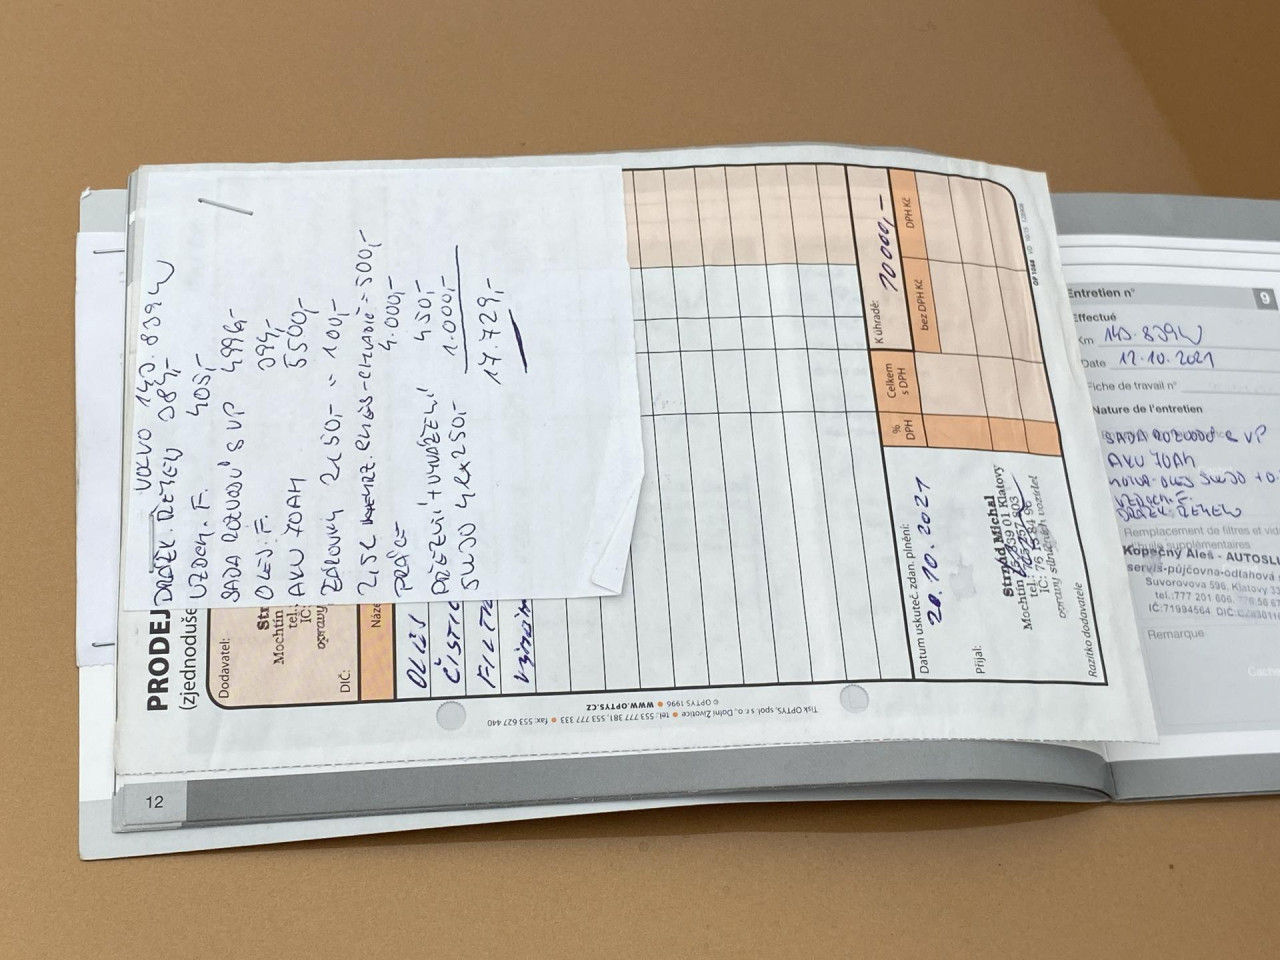 VOLVO 143.839W
DRÁŽK. ŘEMEN 384,-
VZDCH. F. 405,-
SADA ROZVODŮ S VP 4996,-
OLEJ. F. 394,-
AKU 70AH 5500,-
ŽÁROVKY 2x50,- = 100,-
500,-
PRÁCE 4.000,-
PŘEZUTÍ + VYVÁŽENÍ 450,-
5W30 4Lx250,- 1.000,-
17.729,-
PRODEJ
(zjednoduše
Dodavatel:
Mochtín
tel.:
IČ:
opravy
DIČ:
Náze
OLEJ
ČISTIC
FILTR
K úhradě: 10000,-
% DPH
Celkem s DPH
bez DPH Kč
DPH Kč
Datum uskuteč. zdan. plnění:
20.10.2021
Přijal:
Strnad Michal
Mochtín 339 01 Klatovy
tel.:
IČ:
opravy silničních vozidel
Razítko dodavatele
Tisk OPTYS, spol. s r. o., Dolní Životice • tel.: 553 777 381, 553 777 333 • fax: 553 627 440
© OPTYS 1996 • WWW.OPTYS.CZ
12
Entretien n° 9
Effectué
Km 143.839W
Date 12.10.2021
Fiche de travail n°
Nature de l'entretien
SADA ROZVODŮ S VP
AKU 70AH
OLEJ 5W30
VZDCH. F.
DRÁŽK. ŘEMEN
Remplacement de filtres et
supplémentaires
Kopačný Aleš - AUTOSLU
servis-půjčovna-odtahová
Suvorovova 596, Klatovy 33
tel.:777 201 606,
IČ:71994564 DIČ:
Remarque